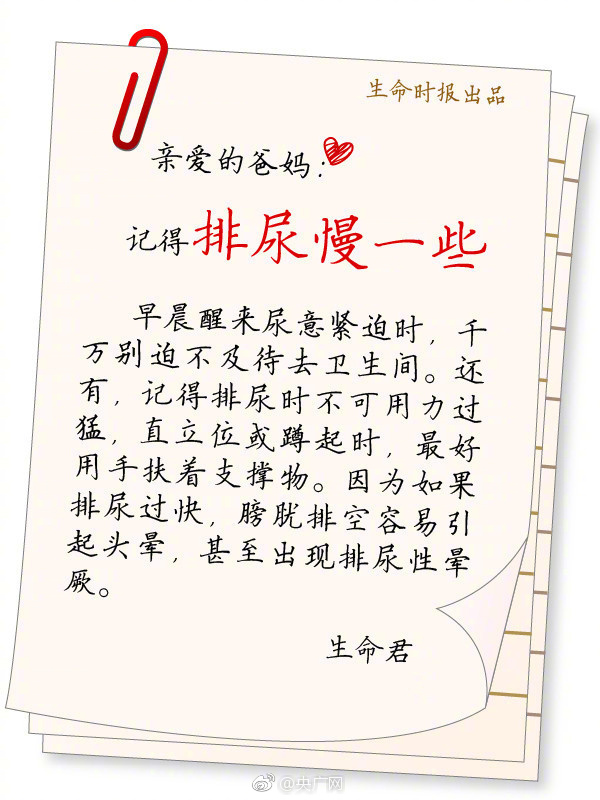 生命时报出品
亲爱的爸妈：
记得排尿慢一些
早晨醒来尿意紧迫时，千
万别迫不及待去卫生间。还
有，记得排尿时不可用力过
猛，直立位或蹲起时，最好
用手扶着支撑物。因为如果
排尿过快，膀胱排空容易引
起头晕，甚至出现排尿性晕
厥。
生命君
@央广网